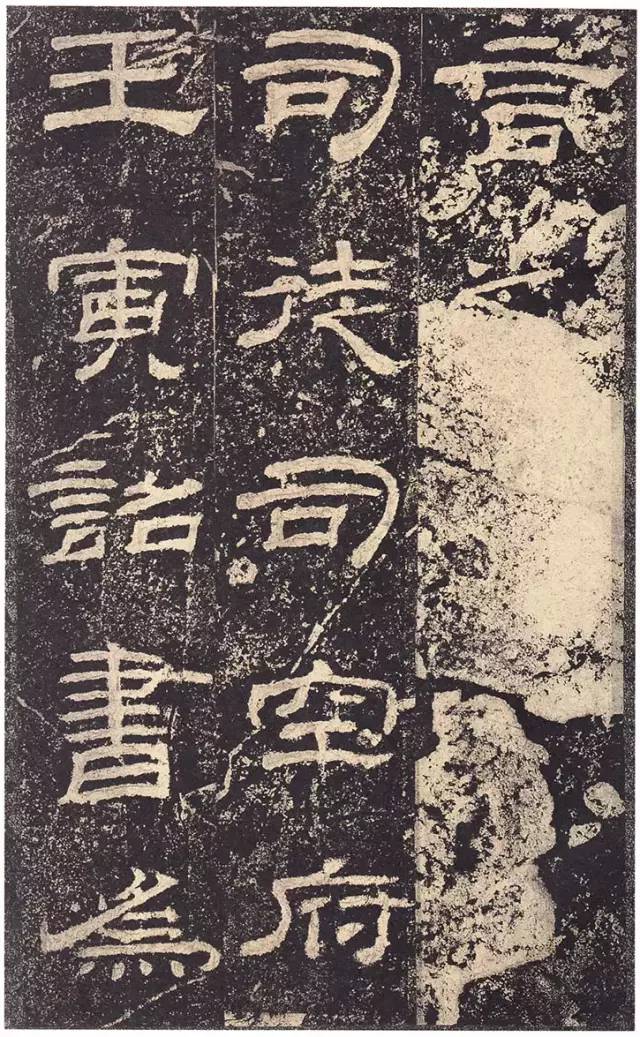 言
司徒司空府
壬寅詔書為